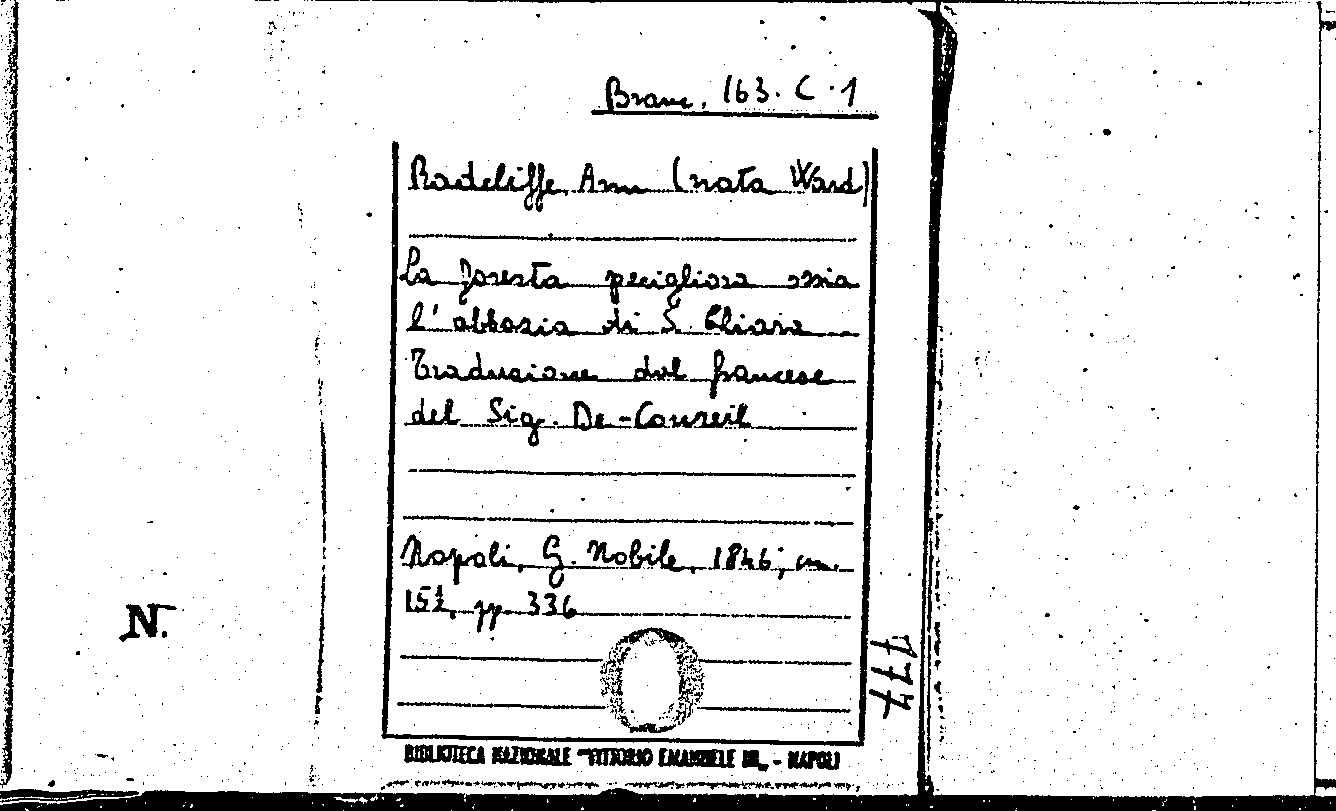 Branc. 163. C. 1
Radcliffe, Ann (nata Ward)
La foresta perigliosa ossia
l'abbazia di S. Chiara
Traduzione dal francese
del Sig. De-Conseil
Napoli, G. Nobile, 1846; cm.
15½, pp. 336
N.
777
BIBLIOTECA NAZIONALE "VITTORIO EMANUELE III" - NAPOLI